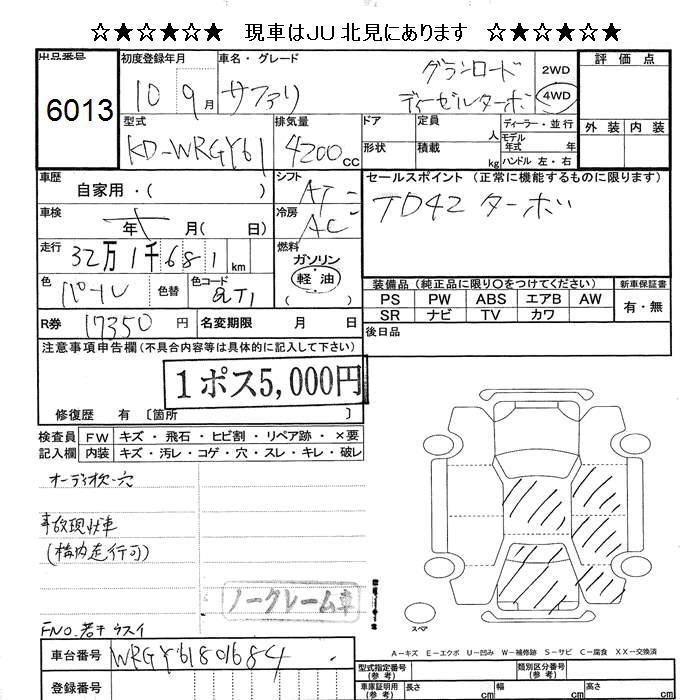 ☆★☆★☆★ 現車はJU北見にあります ☆★☆★☆★
出品番号 初度登録年月 車名・グレード 評価点
6013 10 9月 サファリ グランロード ディーゼルターボ 2WD 4WD
外装 内装
型式 排気量 ドア 定員 人 ディーラー・並行
KD-WRGY61 4200cc 形状 積載 kg モデル年式 年
ハンドル 左・右
車歴 自家用・( ) シフト AT セールスポイント (正常に機能するものに限ります)
車検 年 月( 日) 冷房 AC TD42 ターボ
走行 32万1千681km 燃料 ガソリン 軽油 ( )
色 パール 色替 色コード
装備品 (純正品に限り○をつけてください) 新車保証書
PS PW ABS エアB AW 有・無
SR ナビ TV カワ
R券 17350円 名変期限 月 日 後日品
注意事項申告欄 (不具合内容等は具体的に記入して下さい)
1ポス5,000円
修復歴 有 〔箇所 〕
検査員記入欄 FW キズ・飛石・ヒビ割・リペア跡・×要
内装 キズ・汚レ・コゲ・穴・スレ・キレ・破レ
オーディオ欠-穴
事故現状車
(構内走行可)
ノークレーム車
スペア
FNO.若干ウスイ
A-キズ E-エクボ U-凹み W-補修跡 S-サビ C-腐食 XX-交換済
車台番号 WRGY61801684
登録番号
型式指定番号(参考) 類別区分番号(参考)
車庫証明用(参考) 長さ cm 幅 cm 高さ cm